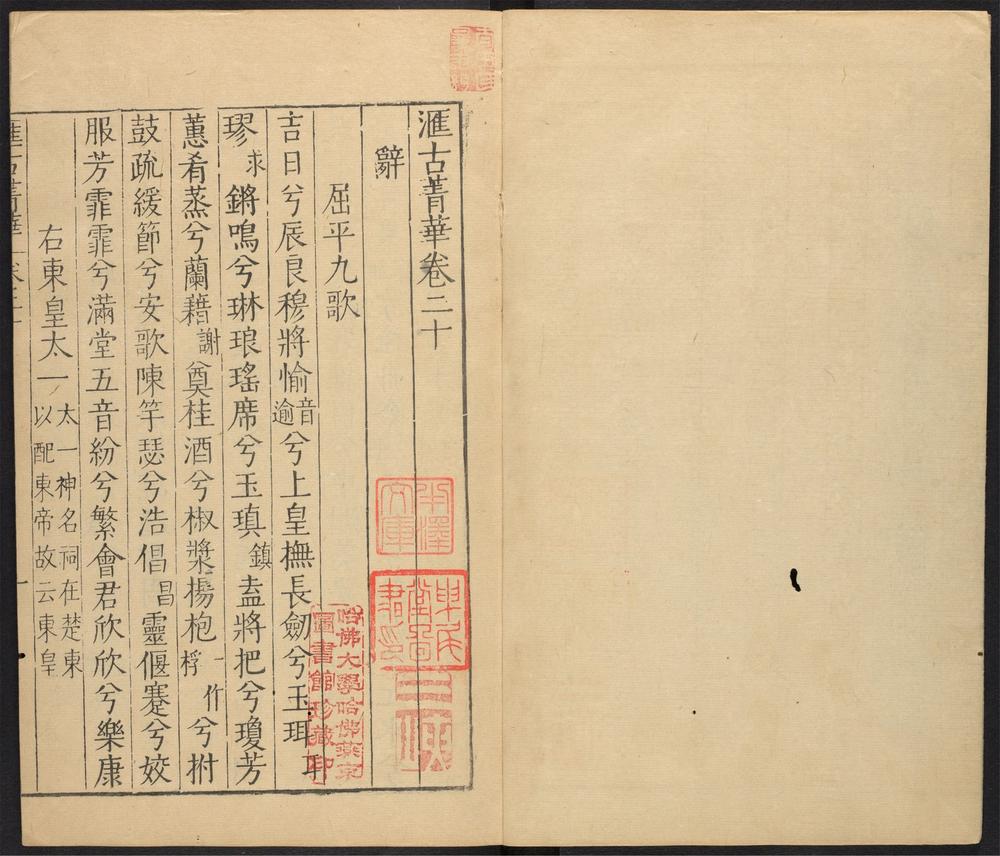 滙古菁華卷二十
辭
屈平九歌
吉日兮辰良穆將愉音逾兮上皇撫長劒兮玉珥耳
璆求鏘鳴兮琳琅瑤席兮玉瑱鎮盍將把兮瓊芳
蕙肴蒸兮蘭藉謝奠桂酒兮椒漿揚枹桴一作兮拊
鼓疏緩節兮安歌陳竽瑟兮浩倡昌靈偃蹇兮姣
服芳霏霏兮滿堂五音紛兮繁會君欣欣兮樂康
右東皇太一太一神名祠在楚東
以配東帝故云東皇
滙古菁華
哈佛大學哈佛燕京
圖書館珍藏印